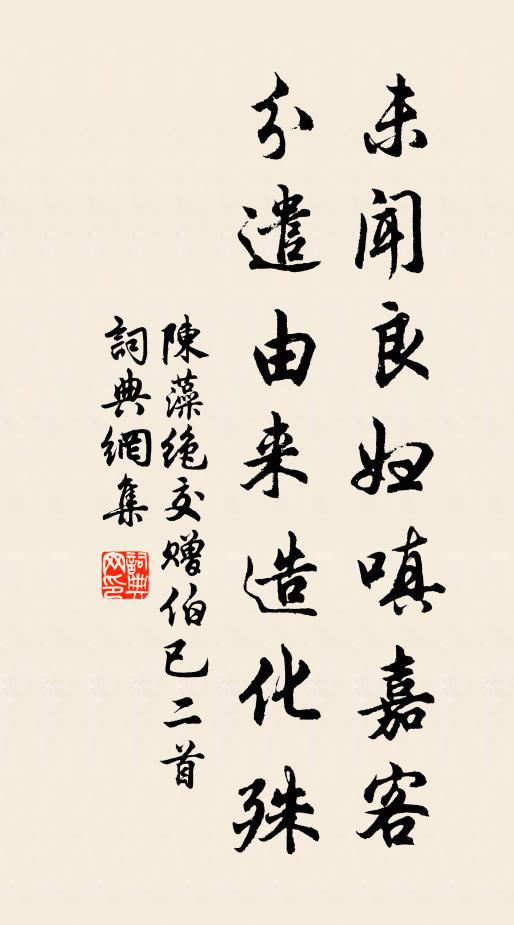 未闻良妇嗔嘉客
分遣由来造化殊
陳藻绝交赠伯已二首
詞典網集
詞典網印